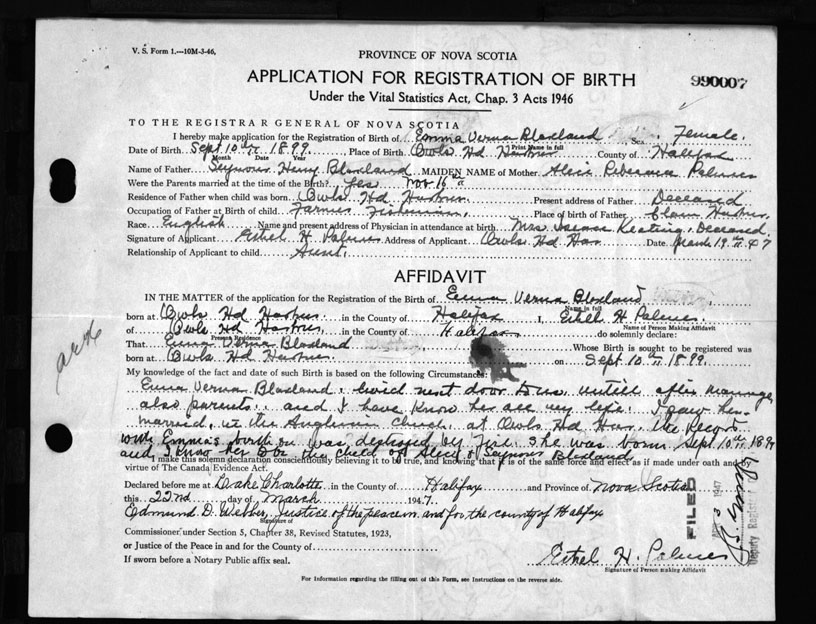 V. S. Form 1.—10M-3-46.
PROVINCE OF NOVA SCOTIA
APPLICATION FOR REGISTRATION OF BIRTH
990007
Under the Vital Statistics Act, Chap. 3 Acts 1946
TO THE REGISTRAR GENERAL OF NOVA SCOTIA
I hereby make application for the Registration of Birth of Emma Verna Blaxland Sex Female.
Print Name in full
Date of Birth Sept 10th 1899. Place of Birth Owls Hd Harbour County of Halifax
Month Date Year
Name of Father Seymour Henry Blaxland MAIDEN NAME of Mother Alice Rebecca Palmer
Were the Parents married at the time of the Birth? Yes Nov. 16th
Residence of Father when child was born Owls Hd Harbour. Present address of Father Deceased
Occupation of Father at Birth of child Farmer Fisherman. Place of birth of Father Clam Harbour.
Race English Name and present address of Physician in attendance at birth Mrs Keating. Deceased
Signature of Applicant Ethel H Palmer Address of Applicant Owls Hd Har Date March 19th 47
Relationship of Applicant to child Aunt.
AFFIDAVIT
IN THE MATTER of the application for the Registration of the Birth of Emma Verna Blaxland
Name in full
born at Owls Hd Harbour in the County of Halifax I, Ethel H. Palmer
Name of Person Making Affidavit
of Owls Hd Harbour, in the County of Halifax do solemnly declare:
Present Residence
That Emma Verna Blaxland Whose Birth is sought to be registered was
born at Owls Hd Harbour on Sept. 10th 1899.
My knowledge of the fact and date of such Birth is based on the following Circumstances:
Emma Verna Blaxland. livid next door to us. untill after marriage,
also parents. and I have know her all my life. I saw her
married, in the Church, at Owls Hd Har. the Record
with Emma's birth on was destroyed by Fire. She was born Sept 10th 1899
and I know her to be the child of Alice & Seymour Blaxland
I make this solemn declaration conscientiously believing it to be true, and knowing that it is of the same force and effect as if made under oath and by
virtue of The Canada Evidence Act.
Declared before me at Lake Charlotte in the County of Halifax and Province of Nova Scotia
this 22nd day of March 1947.
Edmund D. Webber, Justice of the peace in and for the county of Halifax
Signature of
Commissioner under Section 5, Chapter 38, Revised Statutes, 1923,
or Justice of the Peace in and for the County of
If sworn before a Notary Public affix seal.
Ethel H. Palmer
Signature of Person making Affidavit
For Information regarding the filling out of this Form, see Instructions on the reverse side.
FILED
3 1947
Deputy Registrar